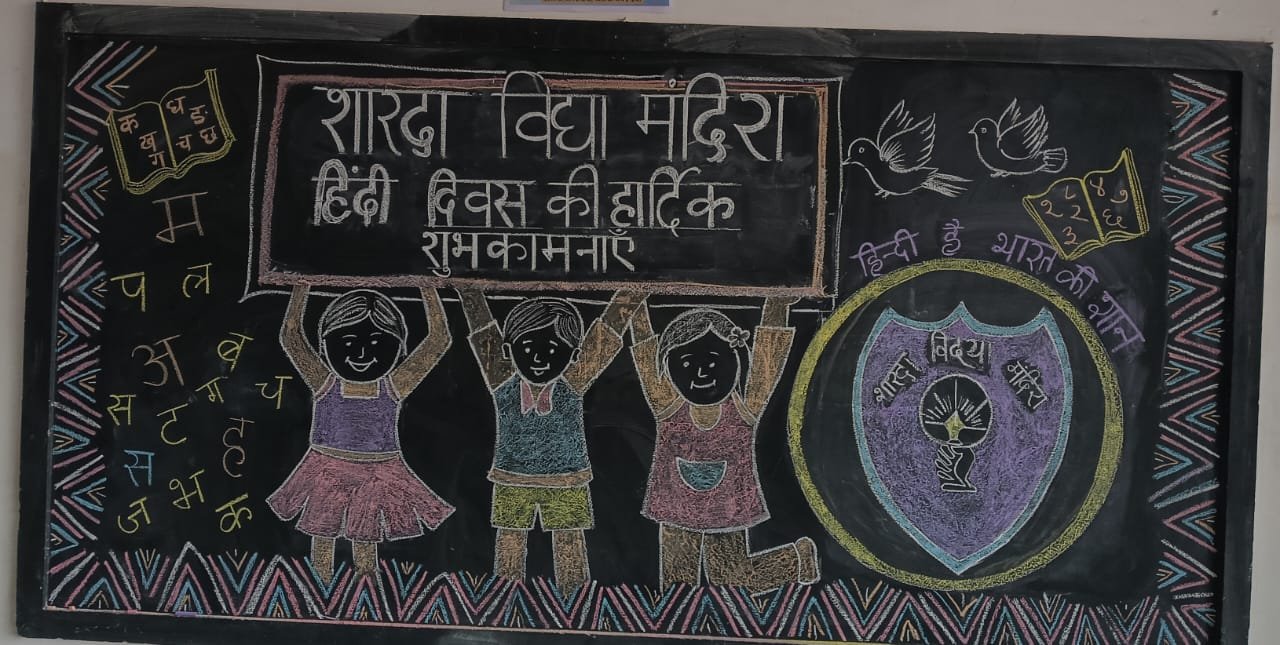 शारदा विद्या मंदिर
हिंदी दिवस की हार्दिक
शुभकामनाएँ
क ख ग
घ ङ च छ
म
प ल
अ ब
स ट ग च
स ह
ज भ क
१ २ ३
४ ७ ६
हिन्दी है भारत की शान
शारदा विद्या मंदिर